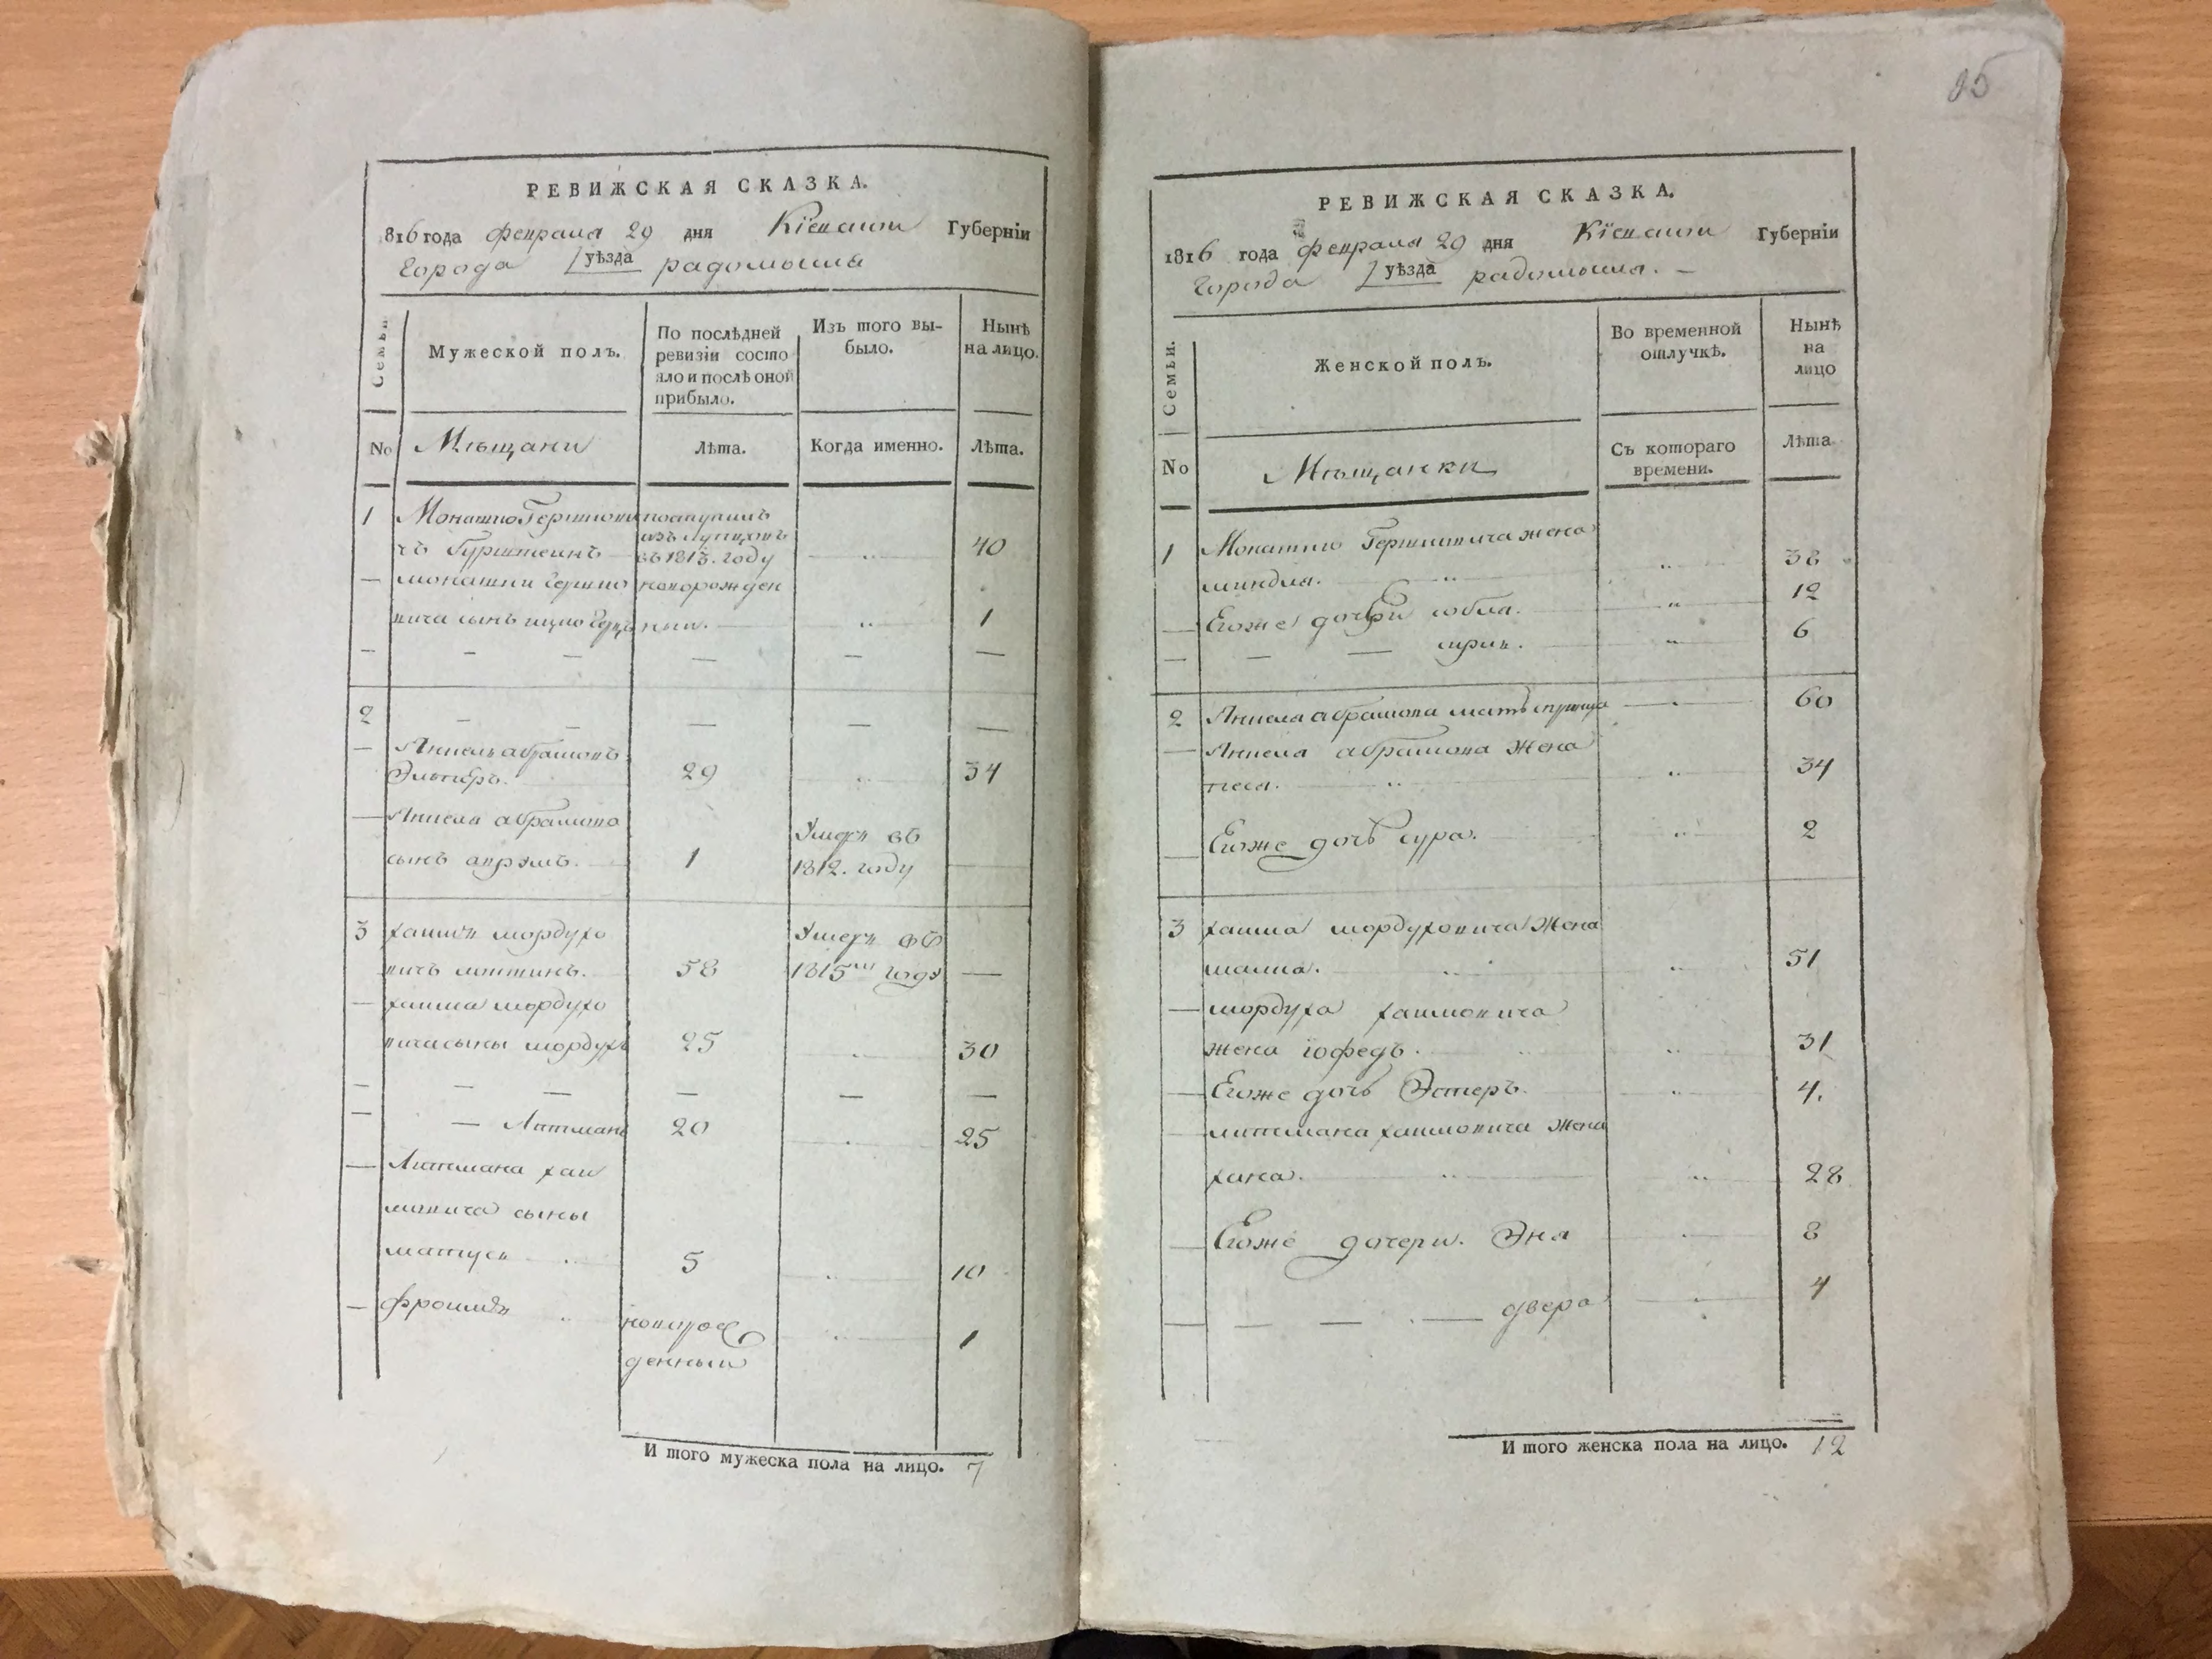 РЕВИЖСКАЯ СКАЗКА.
816 года февраля 29 дня Кіевской Губерніи
Города уѣзда радомысля
Семьи.
Мужеской полъ.
По послѣдней
ревизіи состо
яло и послѣ оной
прибыло.
Изъ того вы-
было.
Нынѣ
на лицо.
No Мѣщани Лѣта. Когда именно. Лѣта.
1 поступилъ
чъ въ 1813. году 40
новорожден
вича сынъ ный. 1
2
Абрамовъ
29 34
абрамова
сынъ 1 Умеръ въ
1812. году
3 хаимъ мордухо Умеръ въ
вичъ 58 1815 году
хаима мордухо
вича сыны мордухъ 25 30
Литманъ 20 25
Литмана хаи
мовича сыны
матусъ 5 10
фроимъ новорож
денный 1
И того мужеска пола на лицо. 7
95
РЕВИЖСКАЯ СКАЗКА.
1816 года февраля 29 дня Кіевской Губерніи
Города уѣзда радомысля.
Семьи.
Женской полъ.
Во временной
отлучкѣ.
Нынѣ
на
лицо
No Мѣщанки Съ котораго
времени.
Лѣта
1 жена
миндля. 38
Егоже дочери 12
6
2 абрамова мать 60
абрамова жена
34
Егоже дочь сура. 2
3 хаима мордуховича жена
51
мордуха хаимовича
жена іофедъ. 31
Егоже дочь Эстеръ. 4.
литмана хаимовича жена
хана. 28
Егоже дочери. Эня 8
двера 4
И того женска пола на лицо. 12